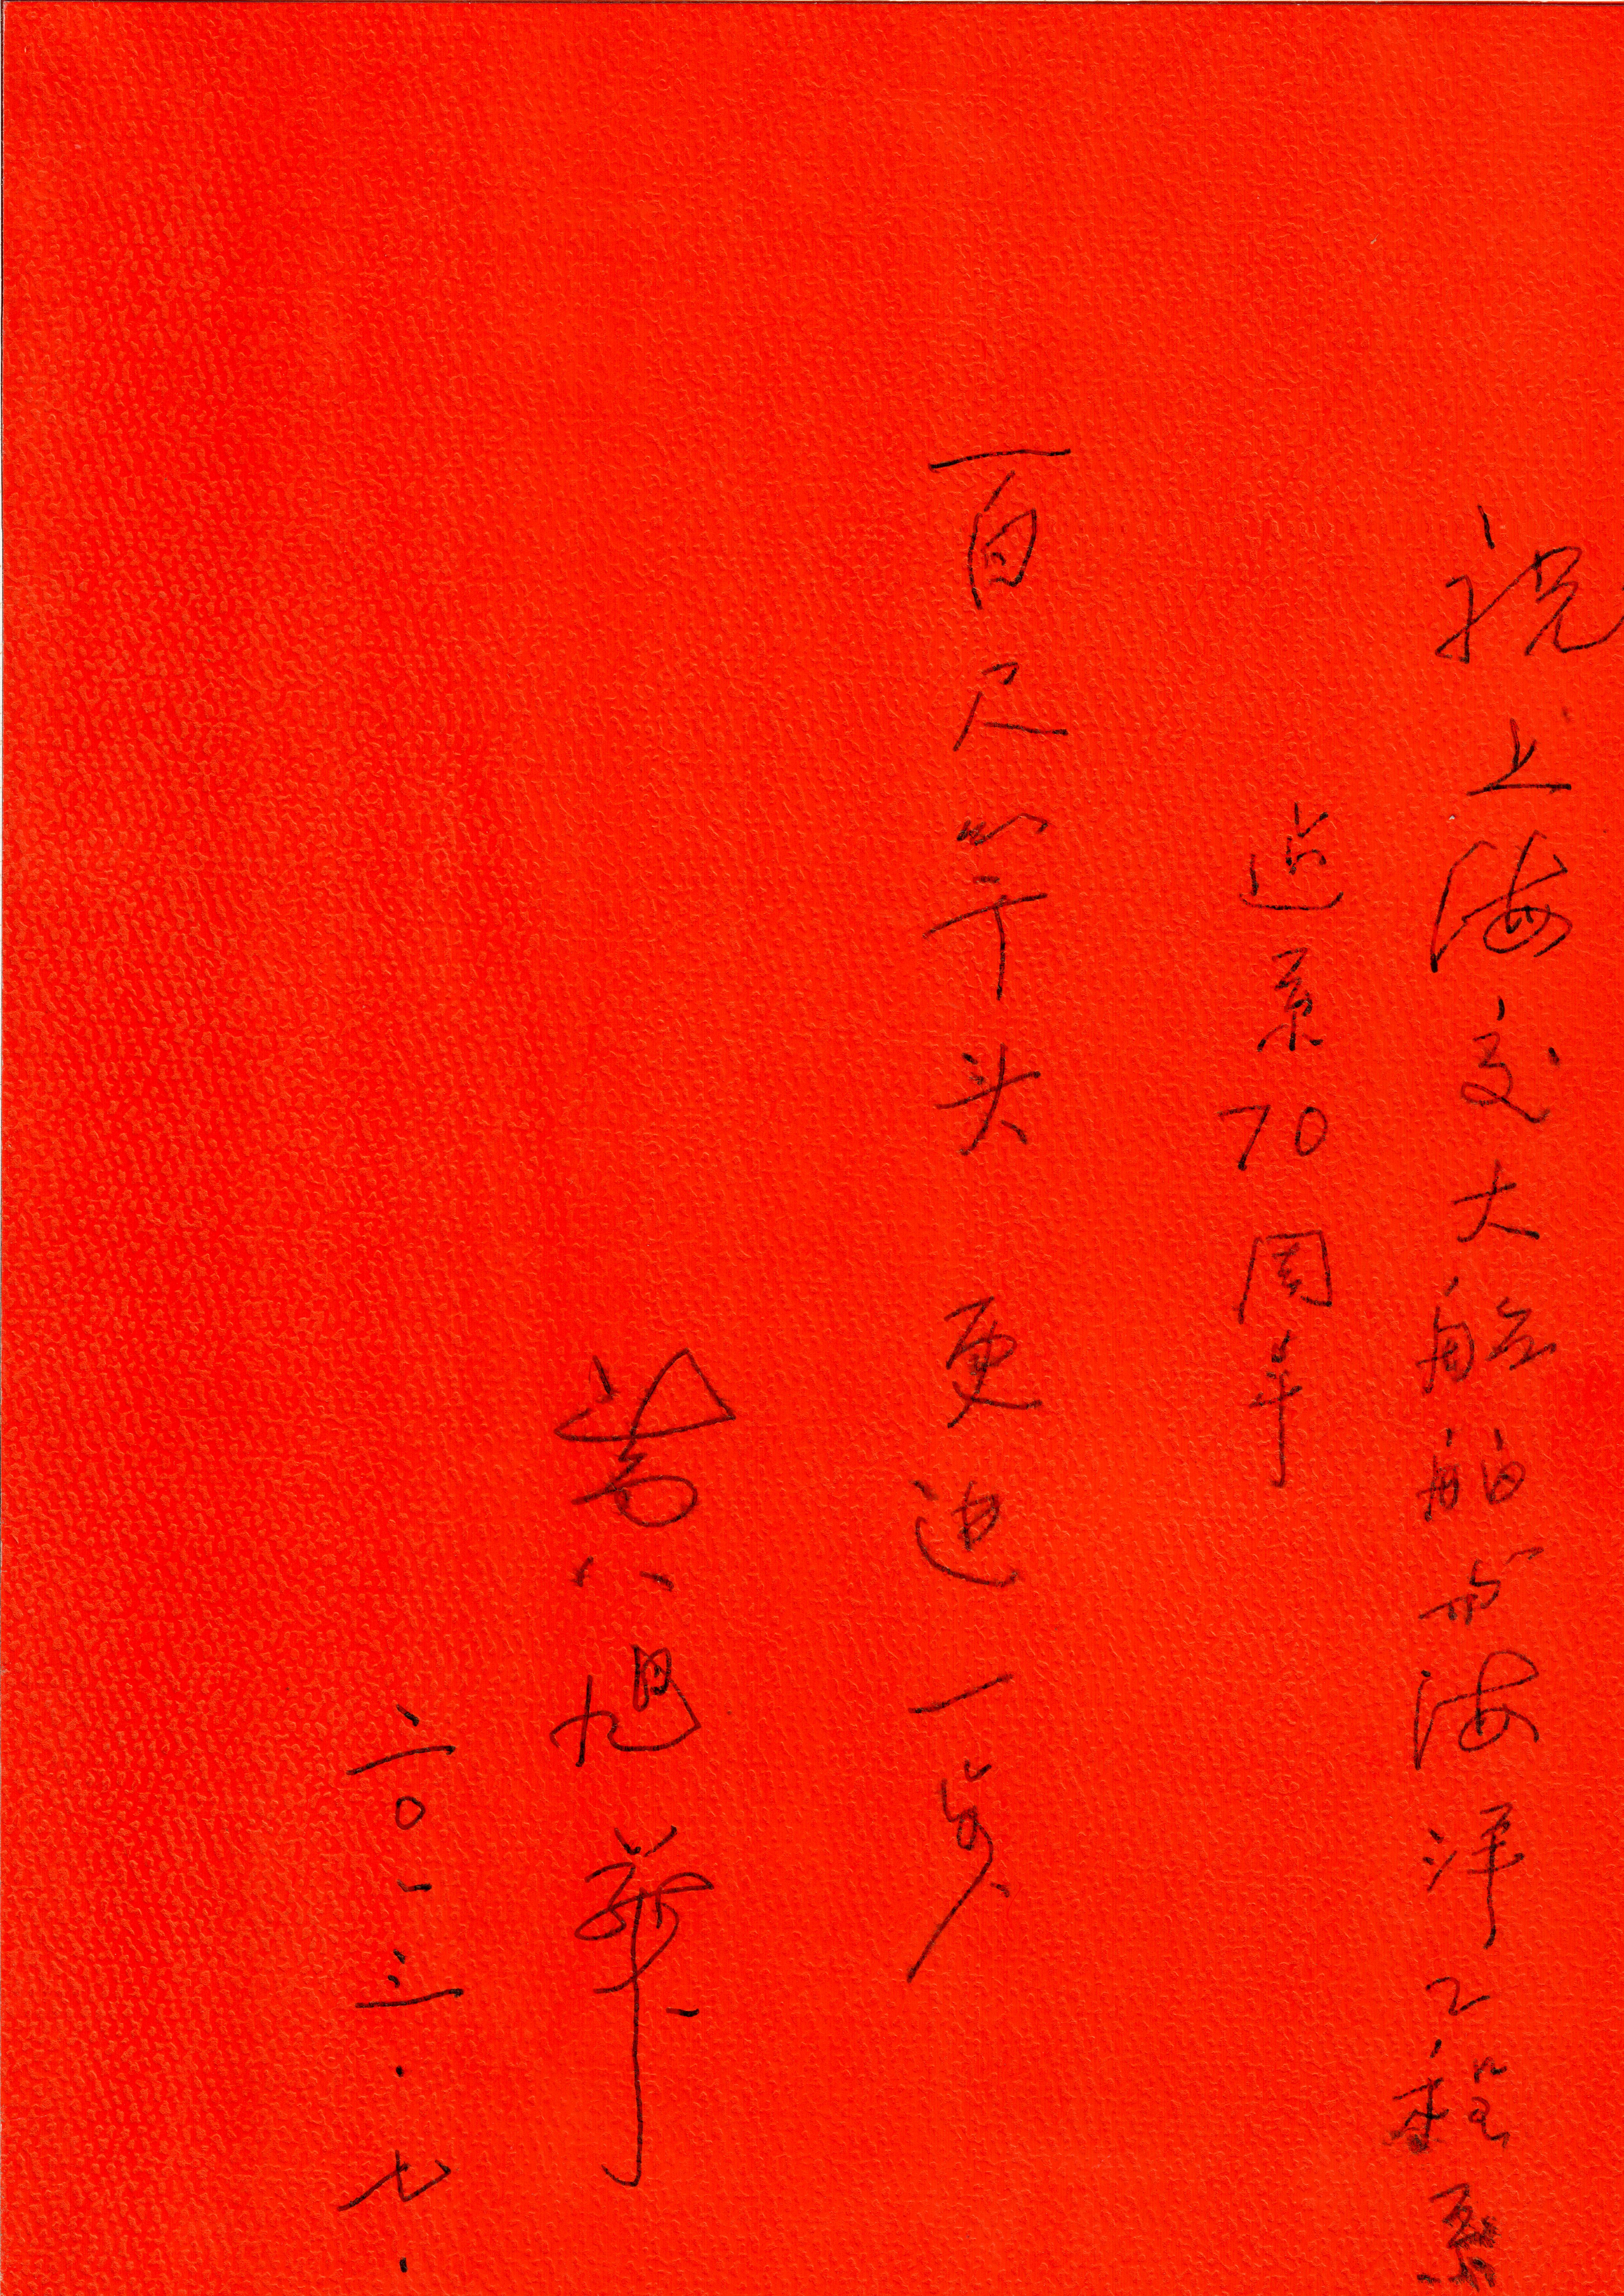 祝上海交大船舶与海洋工程系
建系70周年
百尺竿头 更进一步
黄旭华
二〇一三.七.